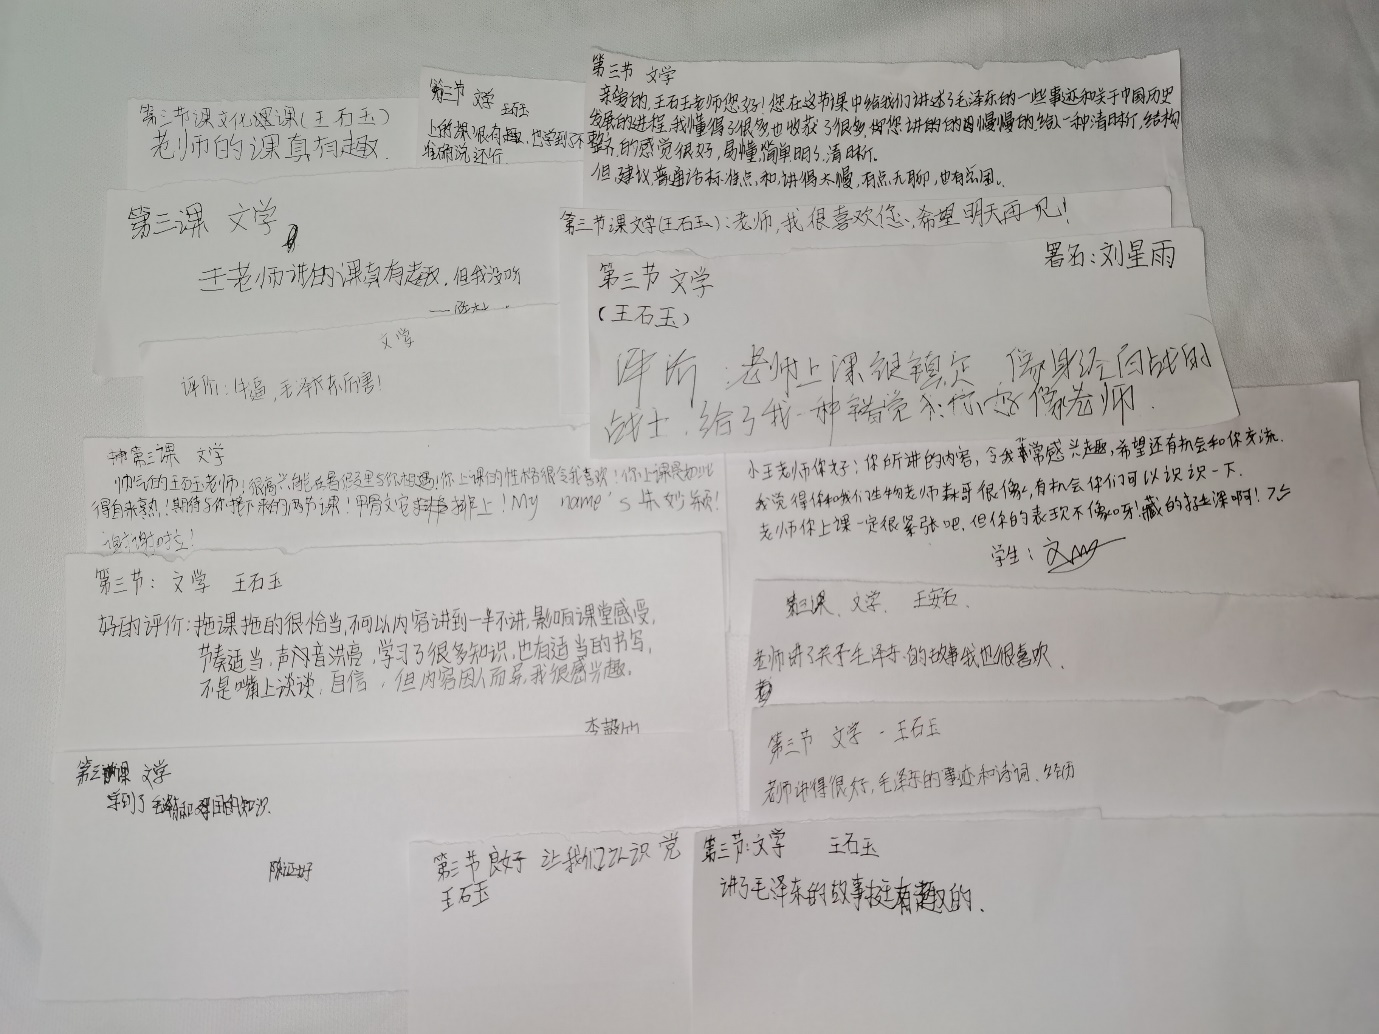 第三节课文化课(王石玉)
老师的课真有趣
第三节 文学 王石玉
上的课很有趣,也学到了不
准确说还行
第三节 文学
亲爱的,王石玉老师您好!您在这节课中给我们讲述了毛泽东的一些事迹和关于中国历史
发展的进程,我懂得了很多也收获了很多,慢慢的给人一种清晰,结构
整齐的感觉很好,易懂,简单明了,清晰.
但,建议,普通话标准点,和,讲得太慢,有点无聊,也有点困.
第三课 文学
王老师讲的课真有趣,但我没听
第三节课文学(王石玉):老师,我很喜欢您,希望明天再见!
署名:刘星雨
第三节 文学
(王石玉)
评价:老师上课很镇定 像身经百战的
战士,给了我一种错觉 您好像老师.
文学
评价:牛逼,毛泽东厉害!
第三课 文学
帅气的王石玉老师!很高兴能在暑假里与你相遇!你上课的性格很令我喜欢!你上课是如此
得自来熟!期待与你接下来的两节课!甲骨文它排上!My name's 朱妙颖!
谢谢
小王老师你好:你所讲的内容,令我非常感兴趣,希望还有机会和你交流.
我觉得你和我们生物老师森哥很像,有机会你们可以认识一下.
老师你上课一定很紧张吧,但你的表现不像呀!藏的挺深啊!
学生:文
第三节: 文学 王石玉
好的评价:拖课拖的很恰当,不可以内容讲到一半不讲,影响课堂感受,
节奏适当,声音洪亮,学习了很多知识,也有适当的书写,
不是嘴上谈谈,自信,但内容因人而异,我很感兴趣.
第三课 文学 王安石.
老师讲了关于毛泽东的故事我也很喜欢.
第三节 文学 - 王石玉
老师讲得很好,毛泽东的事迹和诗词、经历
第三课 文学
学到了毛泽东和中国的知识.
第三节 良好 让我们认识 党
王石玉
第三节:文学 王石玉
讲了毛泽东的故事挺有趣的.